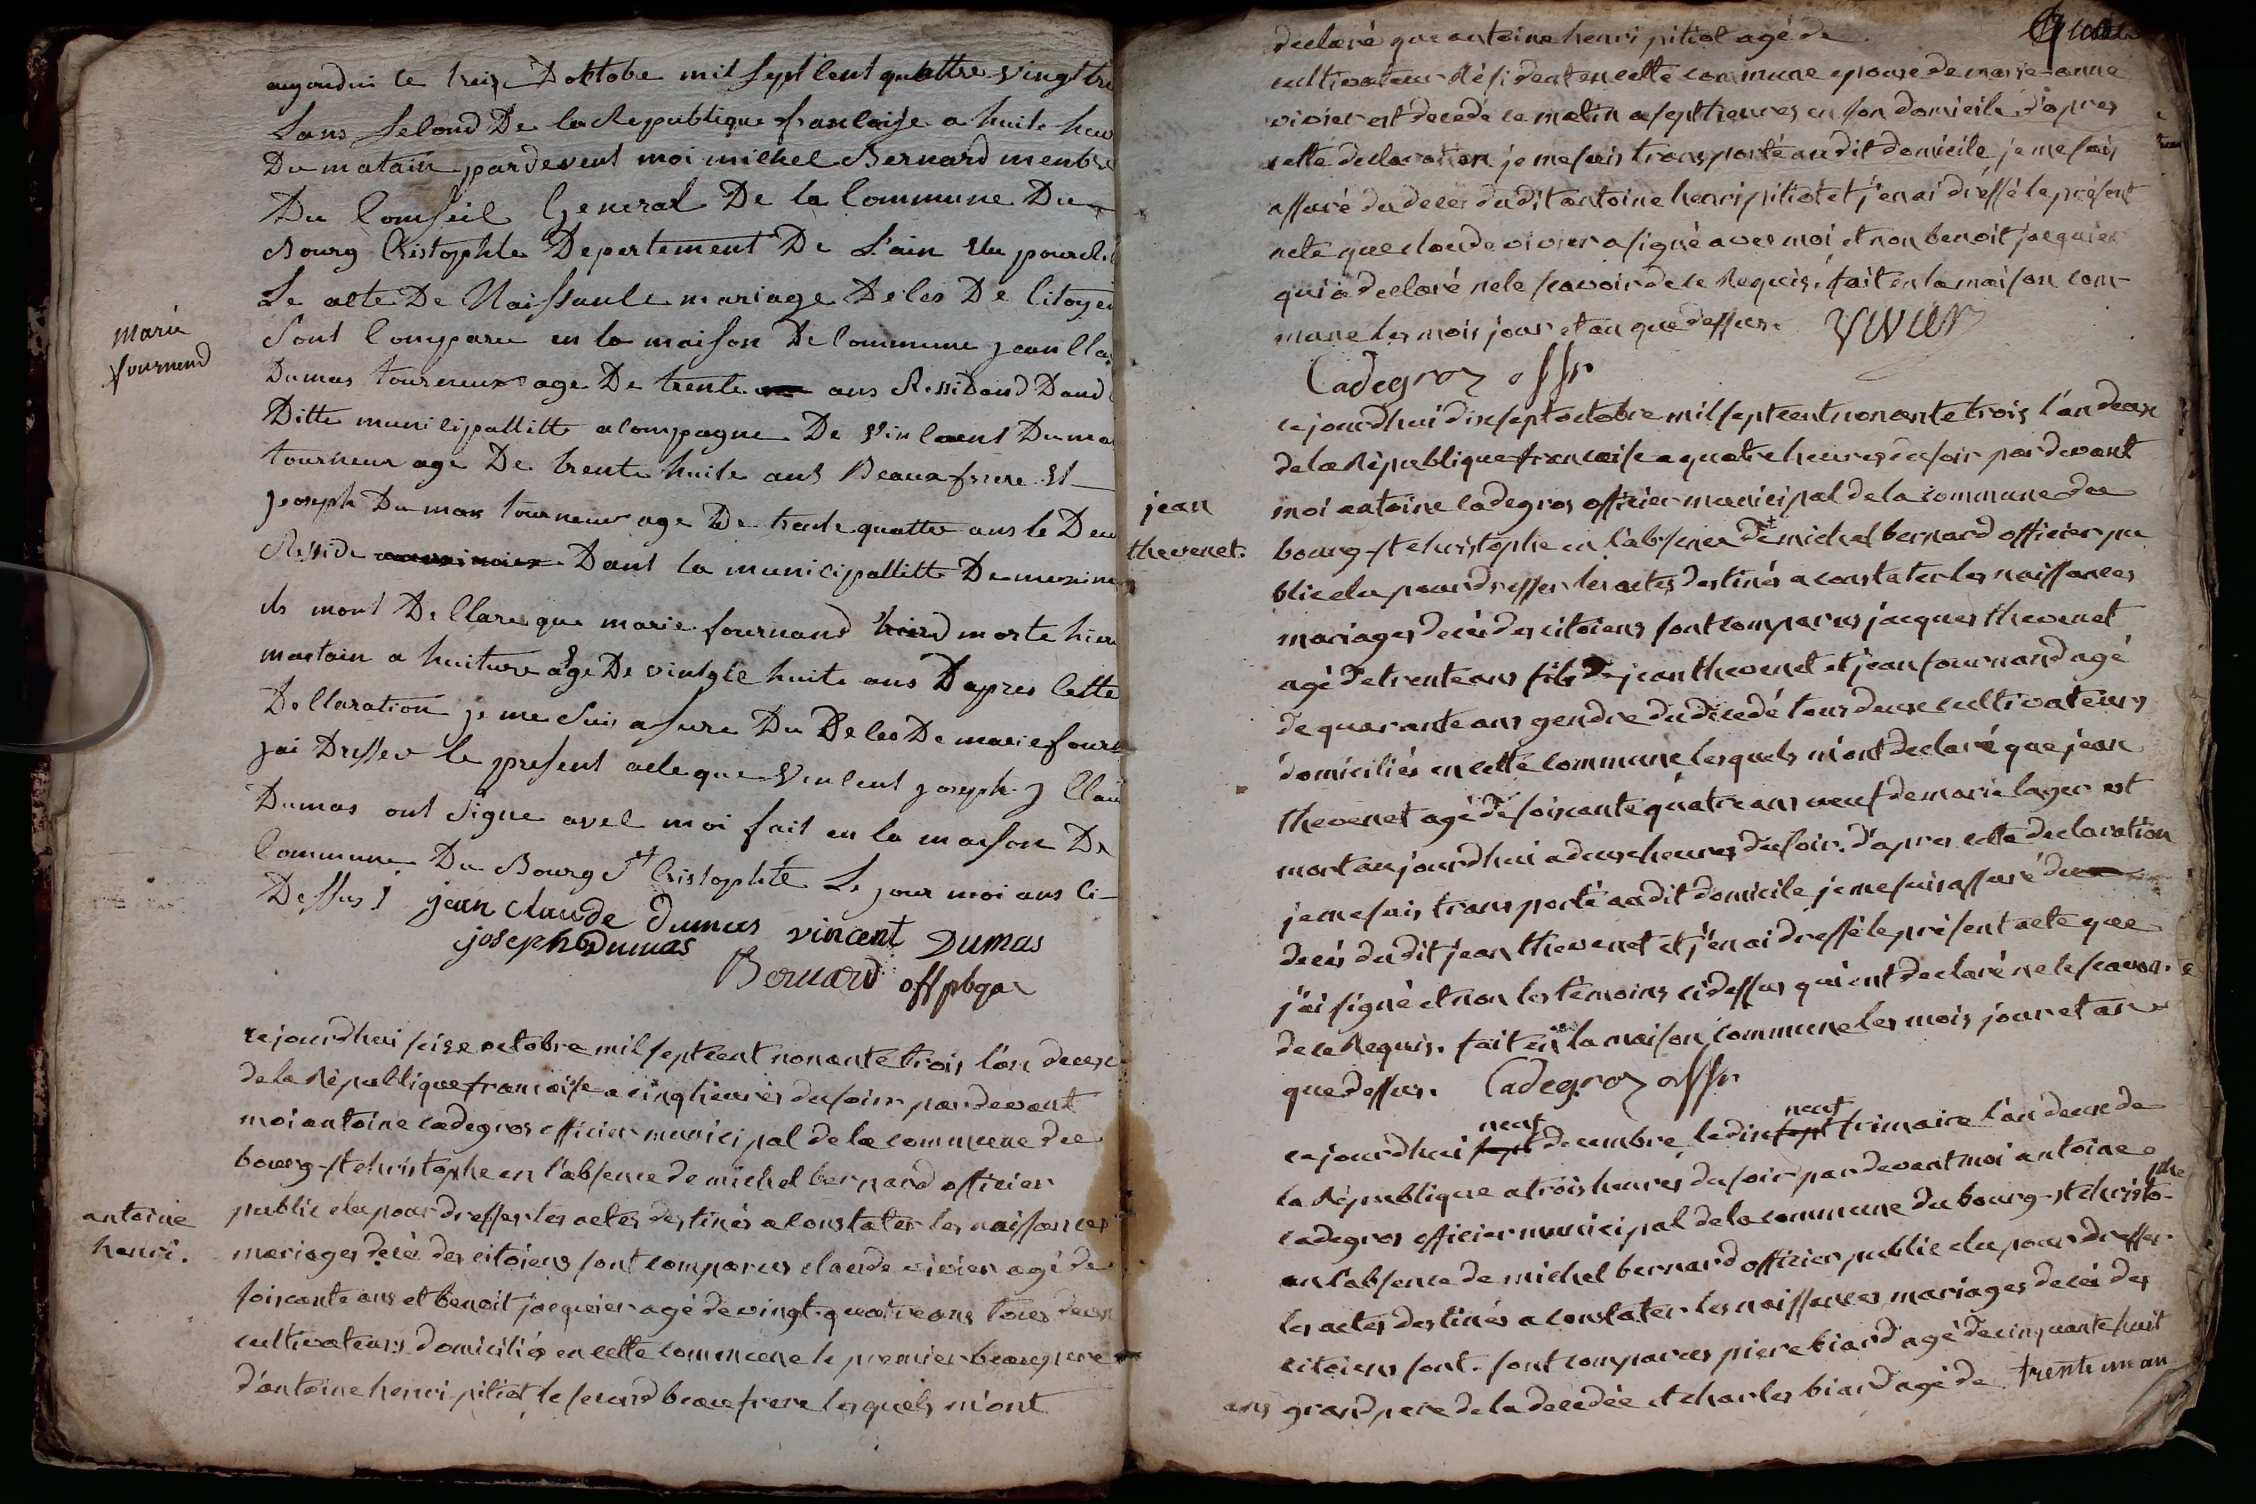 marie
fournend
aujourdui le treize Doktobe mil Sept Cent quattre vingt tre
Lans Second De la Republique francaise a huite heu
Du matain pardevent moi michel Bernard menbre
Du Comseil General De la Commune Du
Bourg Cristophle Departement De L'ain Elu pour
Le acte De Naissance mariage Deces De Citoyen
Sont Comparu en la maison De Commune jean Cla
Dumas tourneur age De trente ans Ressidand Dand
Ditte municipallitte acompagne De Vinlaent Duma
tourneur age De trente huite ans Beaux frere Et
joseph Dumas tourneur age De trente quattre ans le Deu
Reside Dant la municipallitte De mexime
ils mont Declare que marie fournand morte hier
mattain a huiture age De vintgte huite ans Dapres Cette
Declaration je me Suis asure Du Deces De marie fourn
jai Dresser le present acte que Vincent joseph j Clau
Dumas ont Signe avec moi fait en la maison De
Commune Du Bourg St Cristophte Le jour moi ans Ci-
Dessus / jean claude dumas vincent Dumas
joseph dumas
Bernard off pbq
antoine
henri.
cejourdhui seise octobre mil septcent nonante trois l'an deux
de la République francoise a cinq heures du soir pardevant
moi antoine cadegros officier municipal de la commune du
bourg-st christophe en l'absence de michel bernard officier
public elu pour dresser les actes destinés a constater les naissances
mariages décè des citoiens sont comparus claude vivier agé de
soixante ans et benoit jacquier agé de vingt-quatre ans tous deux
cultivateurs domiciliés en cette commune le premier beaupere
d'antoine henri pitiot le second beaufrere lesquels m'ont
declaré que antoine henri pitiot agé de
cultivateur résident en cette commune epoux de marie-anne
vivier est decedé ce matin a sept heures en son domicile, d'apres
cette declaration je me suis transporté au dit domicile je me suis
assuré du deces dudit antoine henri pitiot et j'en ai dressé le présent
acte que claude vivier a signé avec moi et non benoit jacquier
qui a declaré ne le scavoir de ce Requis. fait en la maison com-
mune les mois jour et an que dessus. vivier
Cadegros offr
jean
thevenet.
cejourdhui dixsept octobre mil septcent nonante trois l'an deux
de la République francoise a quatre heures du soir pardevant
moi antoine cadegros officier municipal de la commune du
bourg-st christophe en l'absence de michel bernard officier pu
blic elu pour dresser les actes destinés a constater les naissances
mariages decès des citoiens sont comparus jacques thevenet
agé de trente ans fils de jean thevenet et jean fournand agé
de quarante ans gendre du décédé tous deux cultivateurs
domiciliés en cette commune lesquels m'ont declaré que jean
thevenet agé de soixante quatre ans veuf de marie lager est
mort aujourdhui a deux heures du soir. d'apres cette declaration
je me suis transporté audit domicile je me suis assuré du
decès dudit jean thevenet et j'en ai dressé le présent acte que
j'ai signé et non les témoins cidessus qui ont declaré ne le scavoir
de ce Requis. fait en la maison commune les mois jour et an
que dessus. Cadegros offr
cejourdhui sept neuf decembre le dixsept neuf frimaire l'an deux de
la République a trois heures du soir pardevant moi antoine
cadegros officier municipal de la commune du bourg-st christo-phe
en l'absence de michel bernard officier public elu pour dresser
les actes destinés a constater les naissances mariages decès des
citoiens sont. sont comparus piere biard agé de cinquante huit
ans grand pere de la decedée et charles biard agé de trente un an